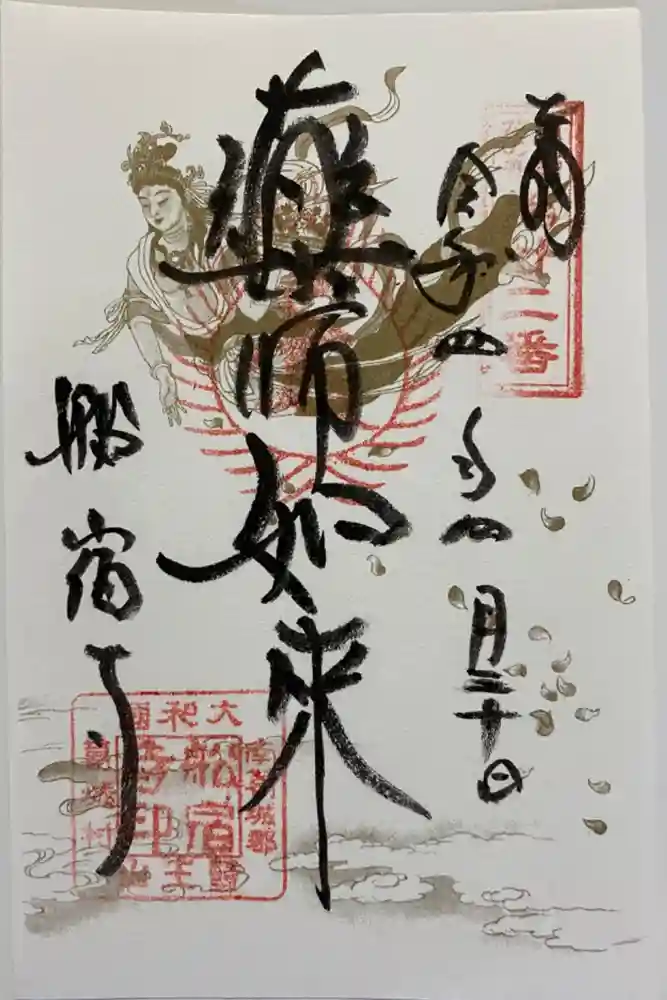 奉
令和四年四月二十日
二番
薬師如来
船宿寺
大和国
南葛城郡
船宿
寺印
葛城村
醫王山